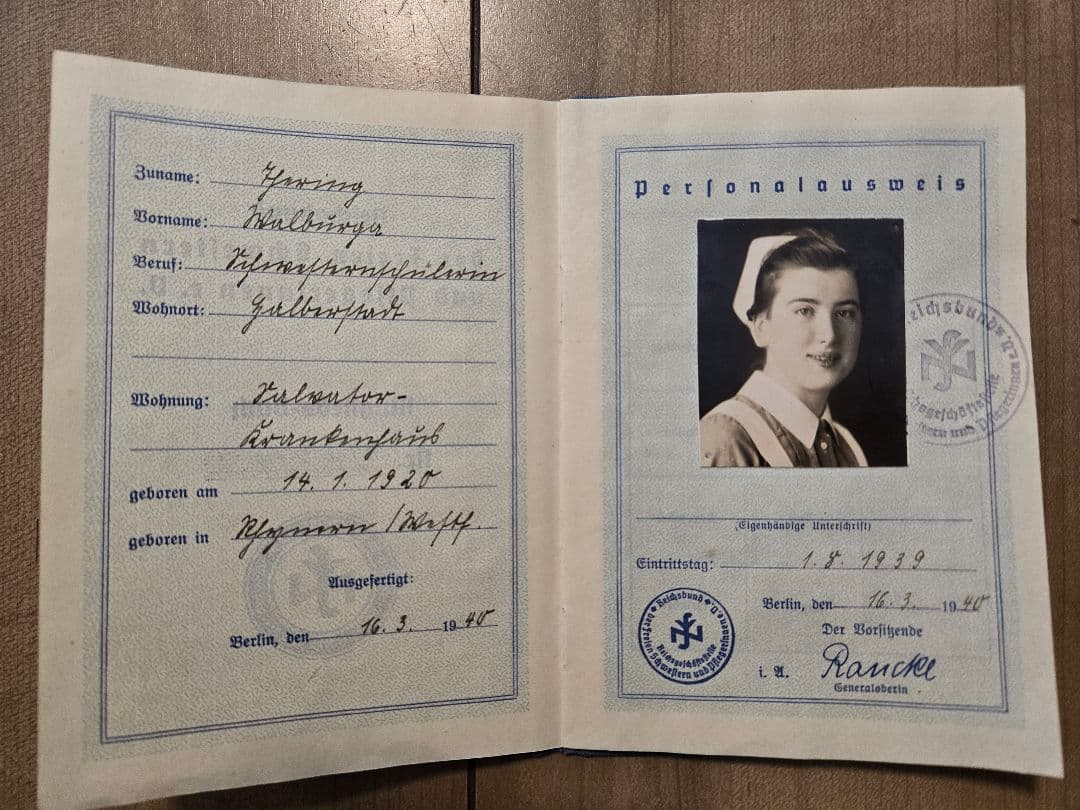 Zuname: Ihering
Vorname: Walburga
Beruf: Schwesternschülerin
Wohnort: Halberstadt
Wohnung: Salvator-
Krankenhaus
geboren am 14. 1. 1920
geboren in Rhynern /Westf.
Ausgefertigt:
Berlin, den 16. 3. 1940
Personalausweis
Reichsbund d.
(Eigenhändige Unterschrift)
Eintrittstag: 1. 8. 1939
Berlin, den 16. 3. 1940
Der Vorsitzende
i. A. Rancke
Generaloberin
Reichsbund
der freien Schwestern und Pflegerinnen e.V.
Reichsgeschäftsstelle